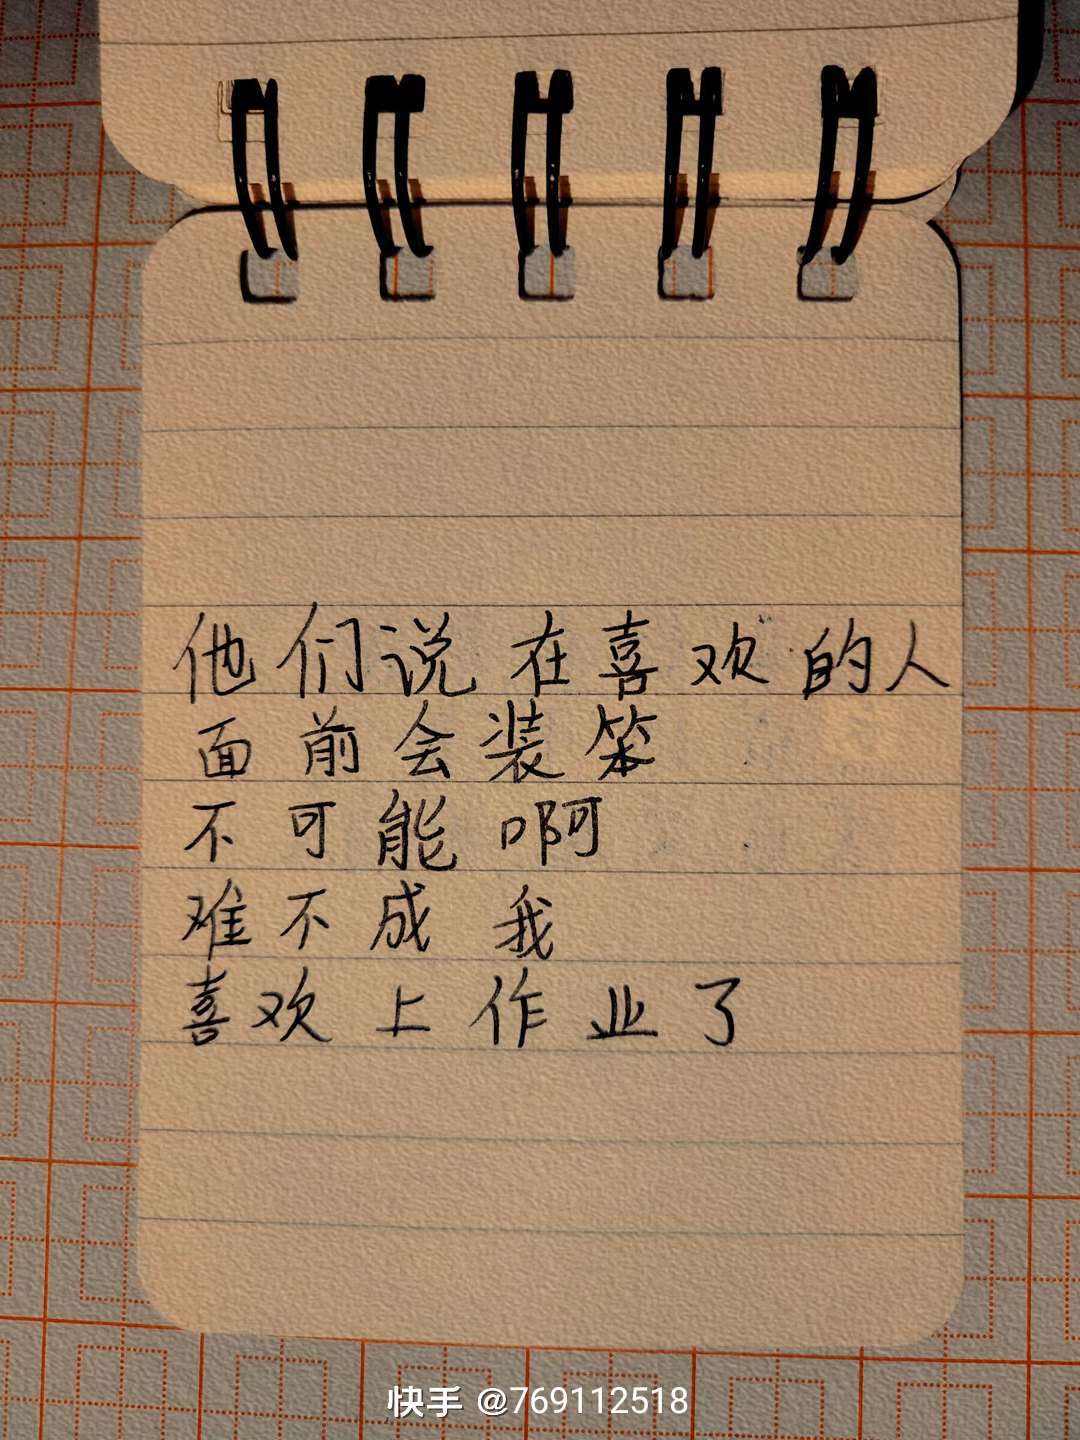 他们说在喜欢的人
面前会装笨
不可能啊
难不成我
喜欢上作业了
快手 @769112518